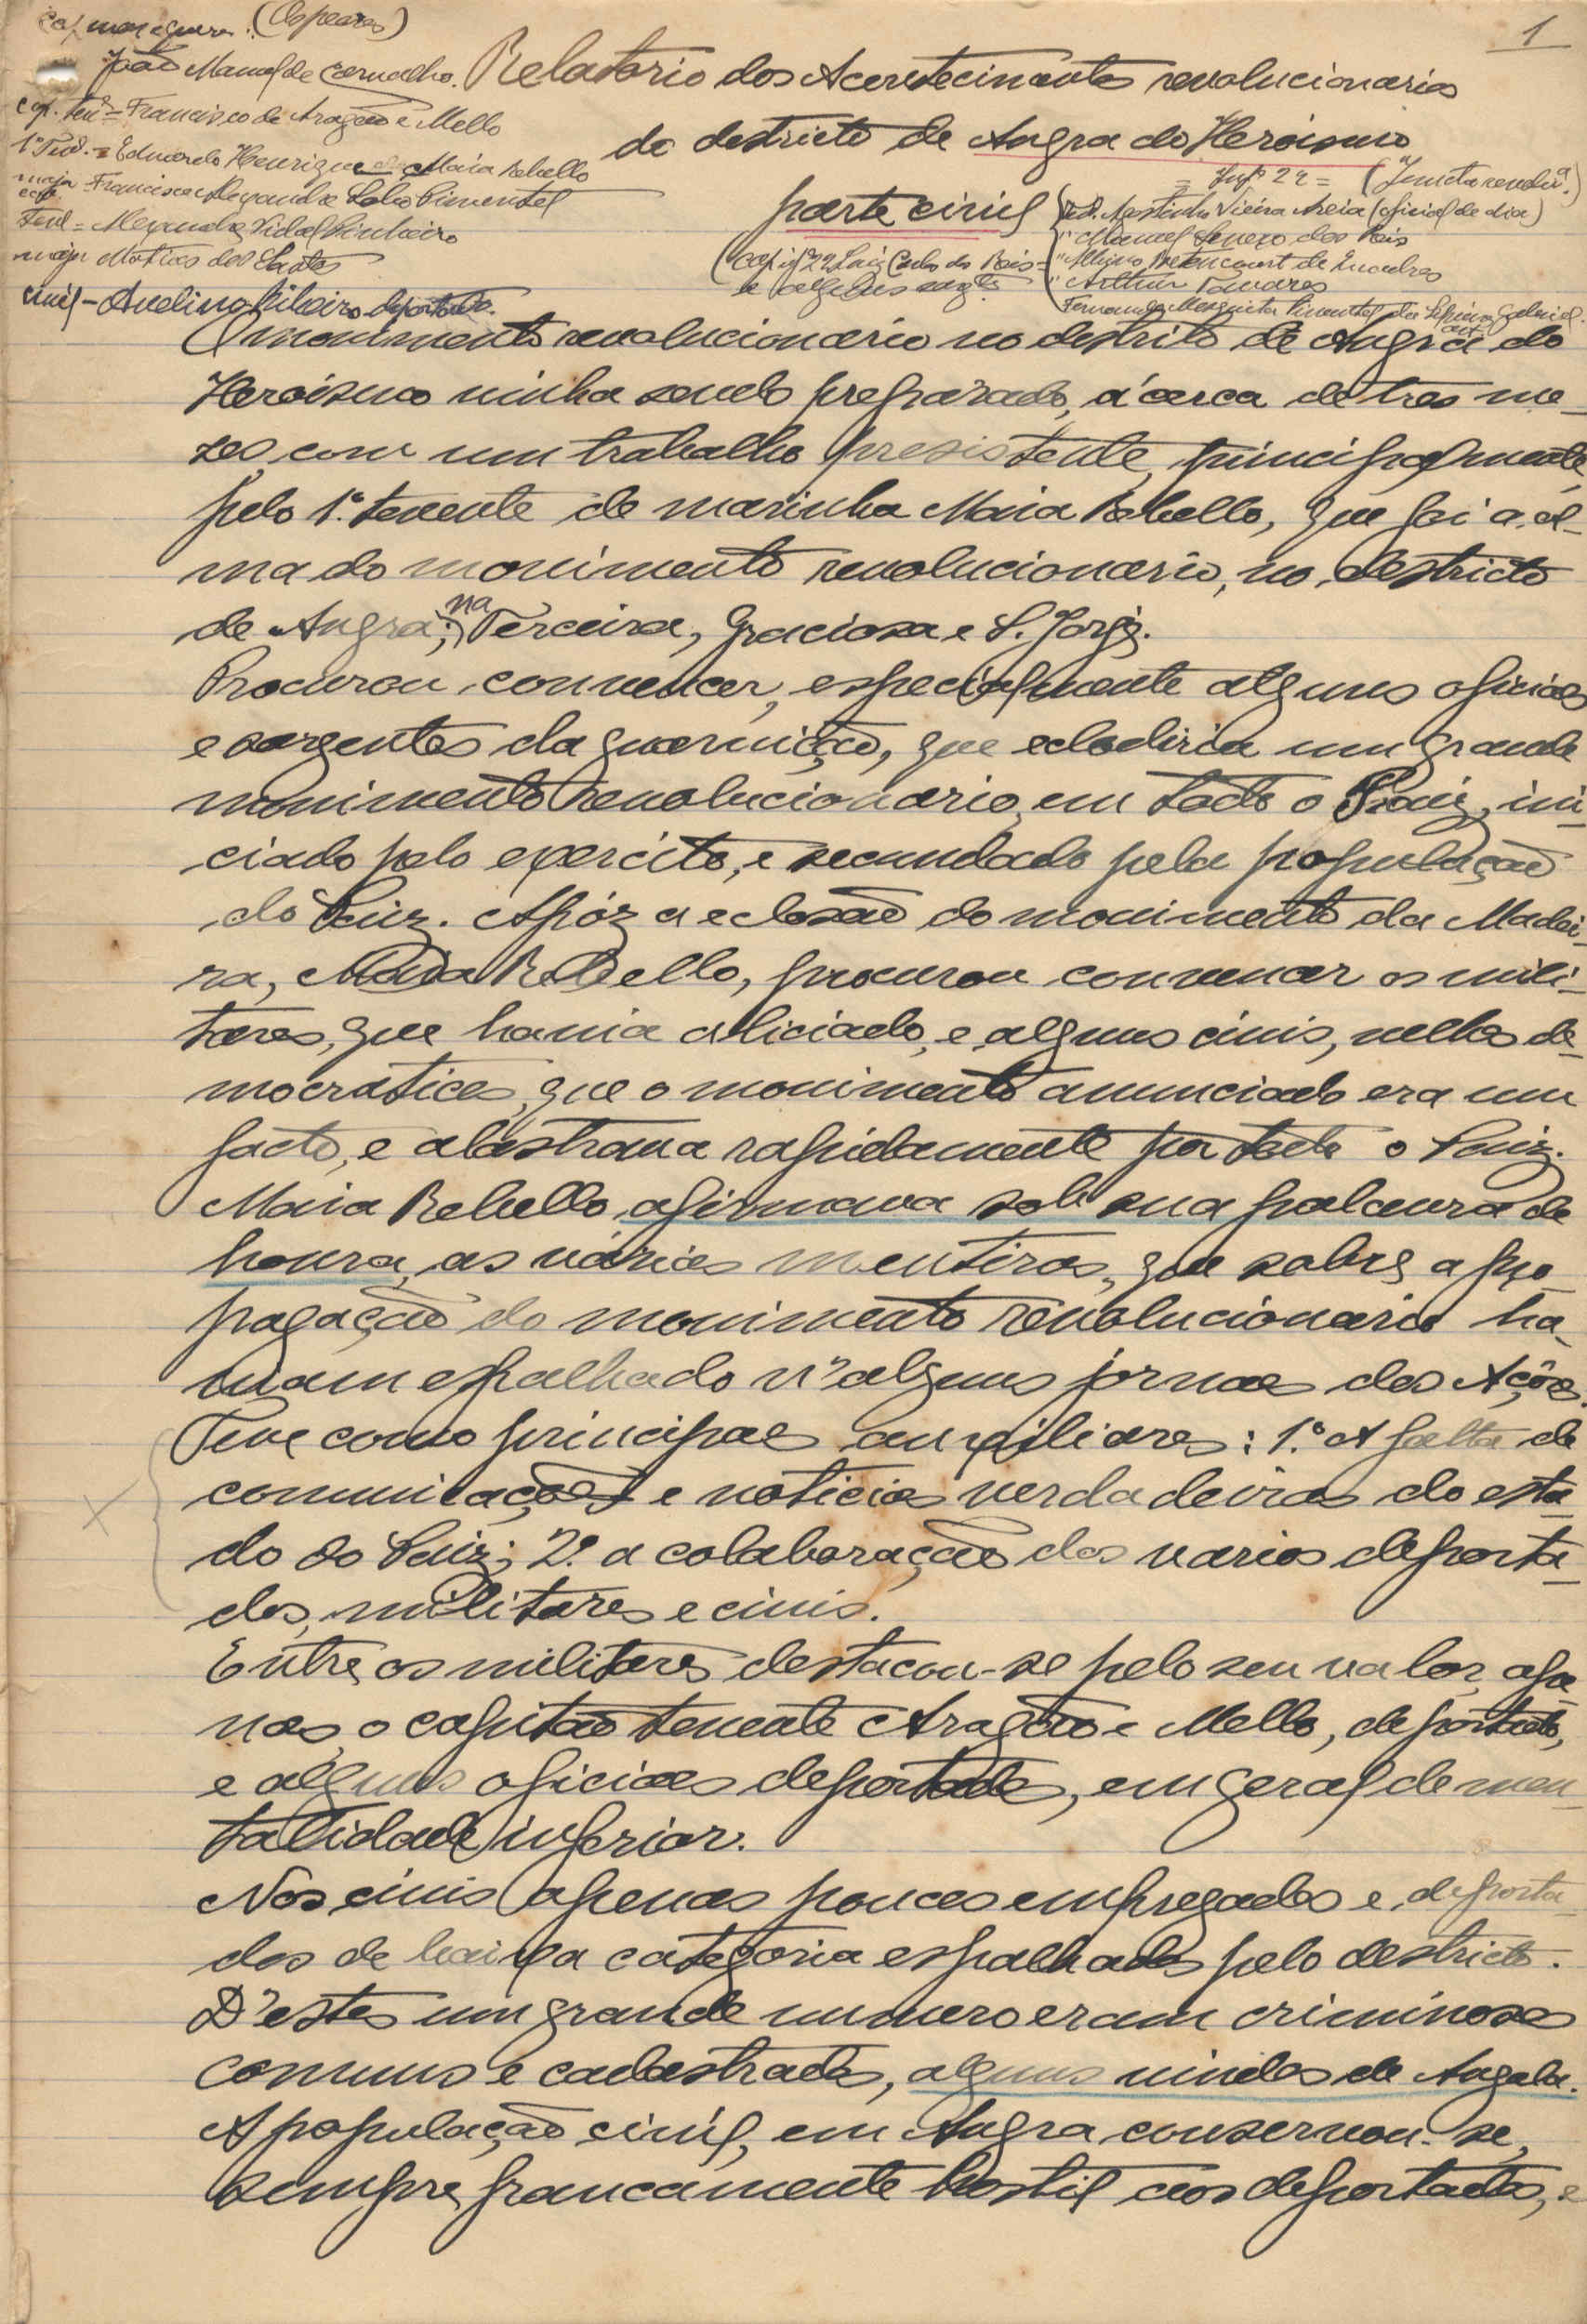 1
João Manuel de Carvalho.
cap. tenᵗᵉ = Francisco de Aragão e Mello
1º Tend. = Eduardo Henrique Maia Rebello
Francisco Alexandre Lobo Pimentel
Tend = Alexandre Vidal Pinheiro
major Matias dos Santos
civil - Avelino Ribeiro deportado.
Relatorio dos Acontecimentos revolucionarios
do destricto de Angra do Heroismo
= Infª 22 = (Juncta revolᵃ.)
parte civil
Agostinho Vieira Areia (oficial de dia)
" Manuel Senezo dos Reis
" Albino Betencourt de
" Arthur Tavares
Fernando Mesquita Pimentel
(cap. infª 22 Luiz Carlos dos Reis
e alguns sargᵗᵒˢ
O movimento revolucionário no destrito de Angra do
Heroísmo vinha sendo preparado, á cerca de tres me-
zes, com um trabalho presistente, principalmente,
pelo 1.º tenente de marinha Maia Rebello, que foi a al-
ma do movimento revolucionario, no destricto
de Angra; na Terceira, Graciosa e S. Jorge.
Procurou convencer, especialmente alguns oficiaes
e sargentos da guarnição, que eclodiria um grande
movimento revolucionario, em todo o Paiz, ini-
ciado pelo exercito, e secundado pela população
do Paiz. Apóz a eclosão do movimento da Madei-
ra, Maia Rebello, procurou convencer os mili-
tares, que havia aliciado, e alguns civis, velhos de-
mocraticos, que o movimento anunciado era um
facto, e alastrava rapidamente por todo o Paiz.
Maia Rebello, afirmava sob sua palavra de
honra, as várias mentiras, que sobre a pro-
pagação do movimento revolucionario ha-
viam espalhado n'alguns jornaes dos Açôres.
Teve como principaes auxiliares: 1.º A falta de
comunicações e noticias verdadeiras do esta-
do do Paiz; 2.º a colaboração dos varios deporta-
dos, militares e civis.
Entre os militares destacou-se pelo seu valor, ape-
nas, o capitão tenente Aragão e Mello, deportado,
e alguns oficiaes deportados, em geral de men-
talidade inferior.
Nos civis apenas poucos empregados e, deporta-
dos de baixa categoria espalhados pelo destricto.
D'estes um grande numero eram criminosos
comuns e cadastrados, alguns vindos de Angola.
A população civil, em Angra conservou-se,
sempre, francamente hostil aos deportados, e